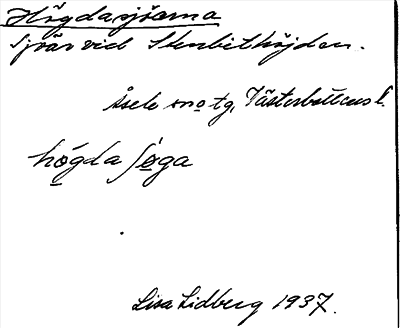 Högdasjöarna
Sjöar vid Stenbithöjden.
Åsele sn o tg, Västerbottens l.
högda søga
Lisa Lidberg 1937.